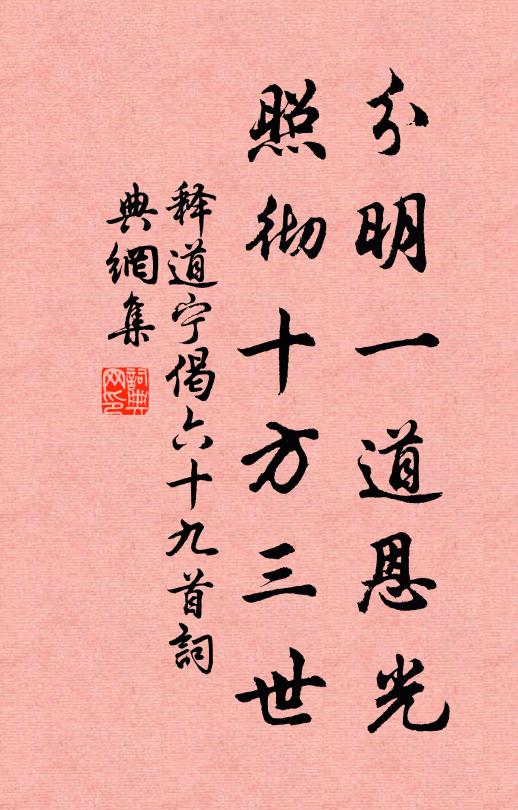 分明一道恩光
照彻十方三世
释道宁偈六十九首詞
典網集
詞典
网印